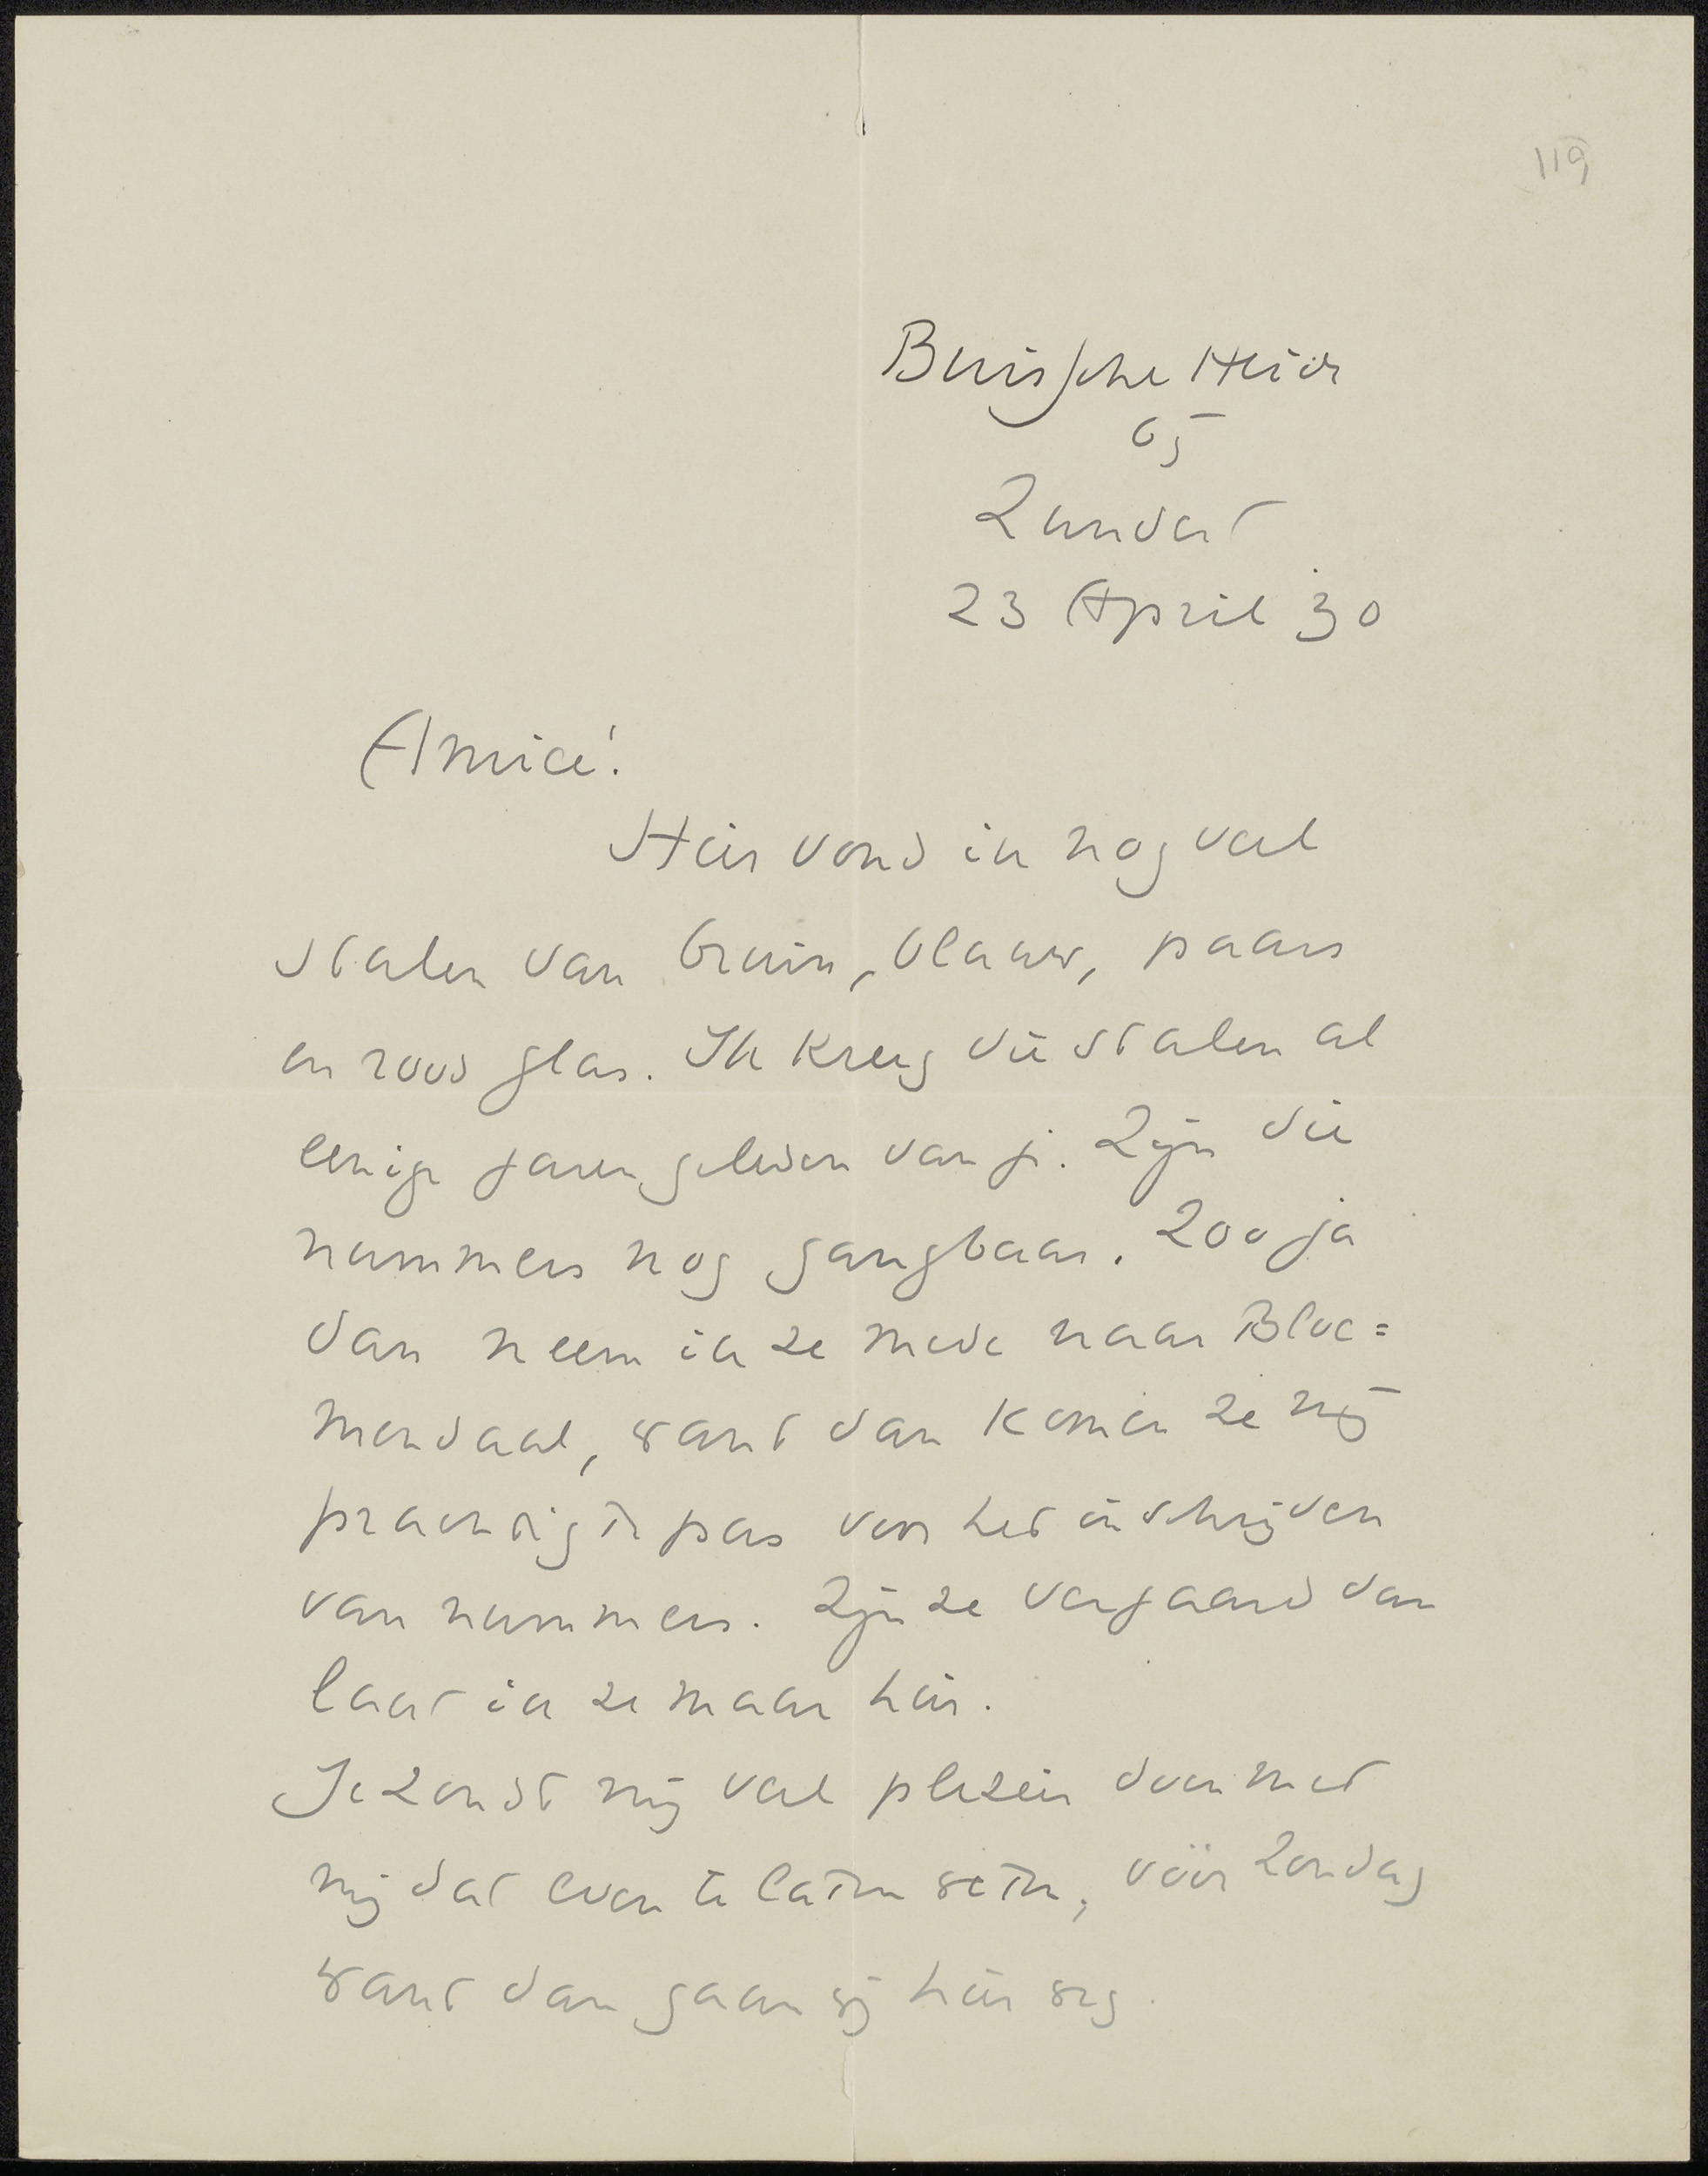 119
Buissche Heide
65
Zundert
23 April '30
Amice!
Hier vond ik nog veel
stalen van bruin, blauw, paars
en rood glas. Ik kreeg die stalen al
eenige jaren geleden van je. Zijn die
nummers nog gangbaar. Zoo ja
dan neem ik ze mede naar Bloe=
mendaal, want dan komen ze mij
prachtig te pas voor het inschrijven
van nummers. Zijn ze verjaard dan
laat ik ze maar hier.
Je zoudt mij veel plezier doen met
mij dat even te laten weten, vóór Zondag
want dan gaan wij hier weg.